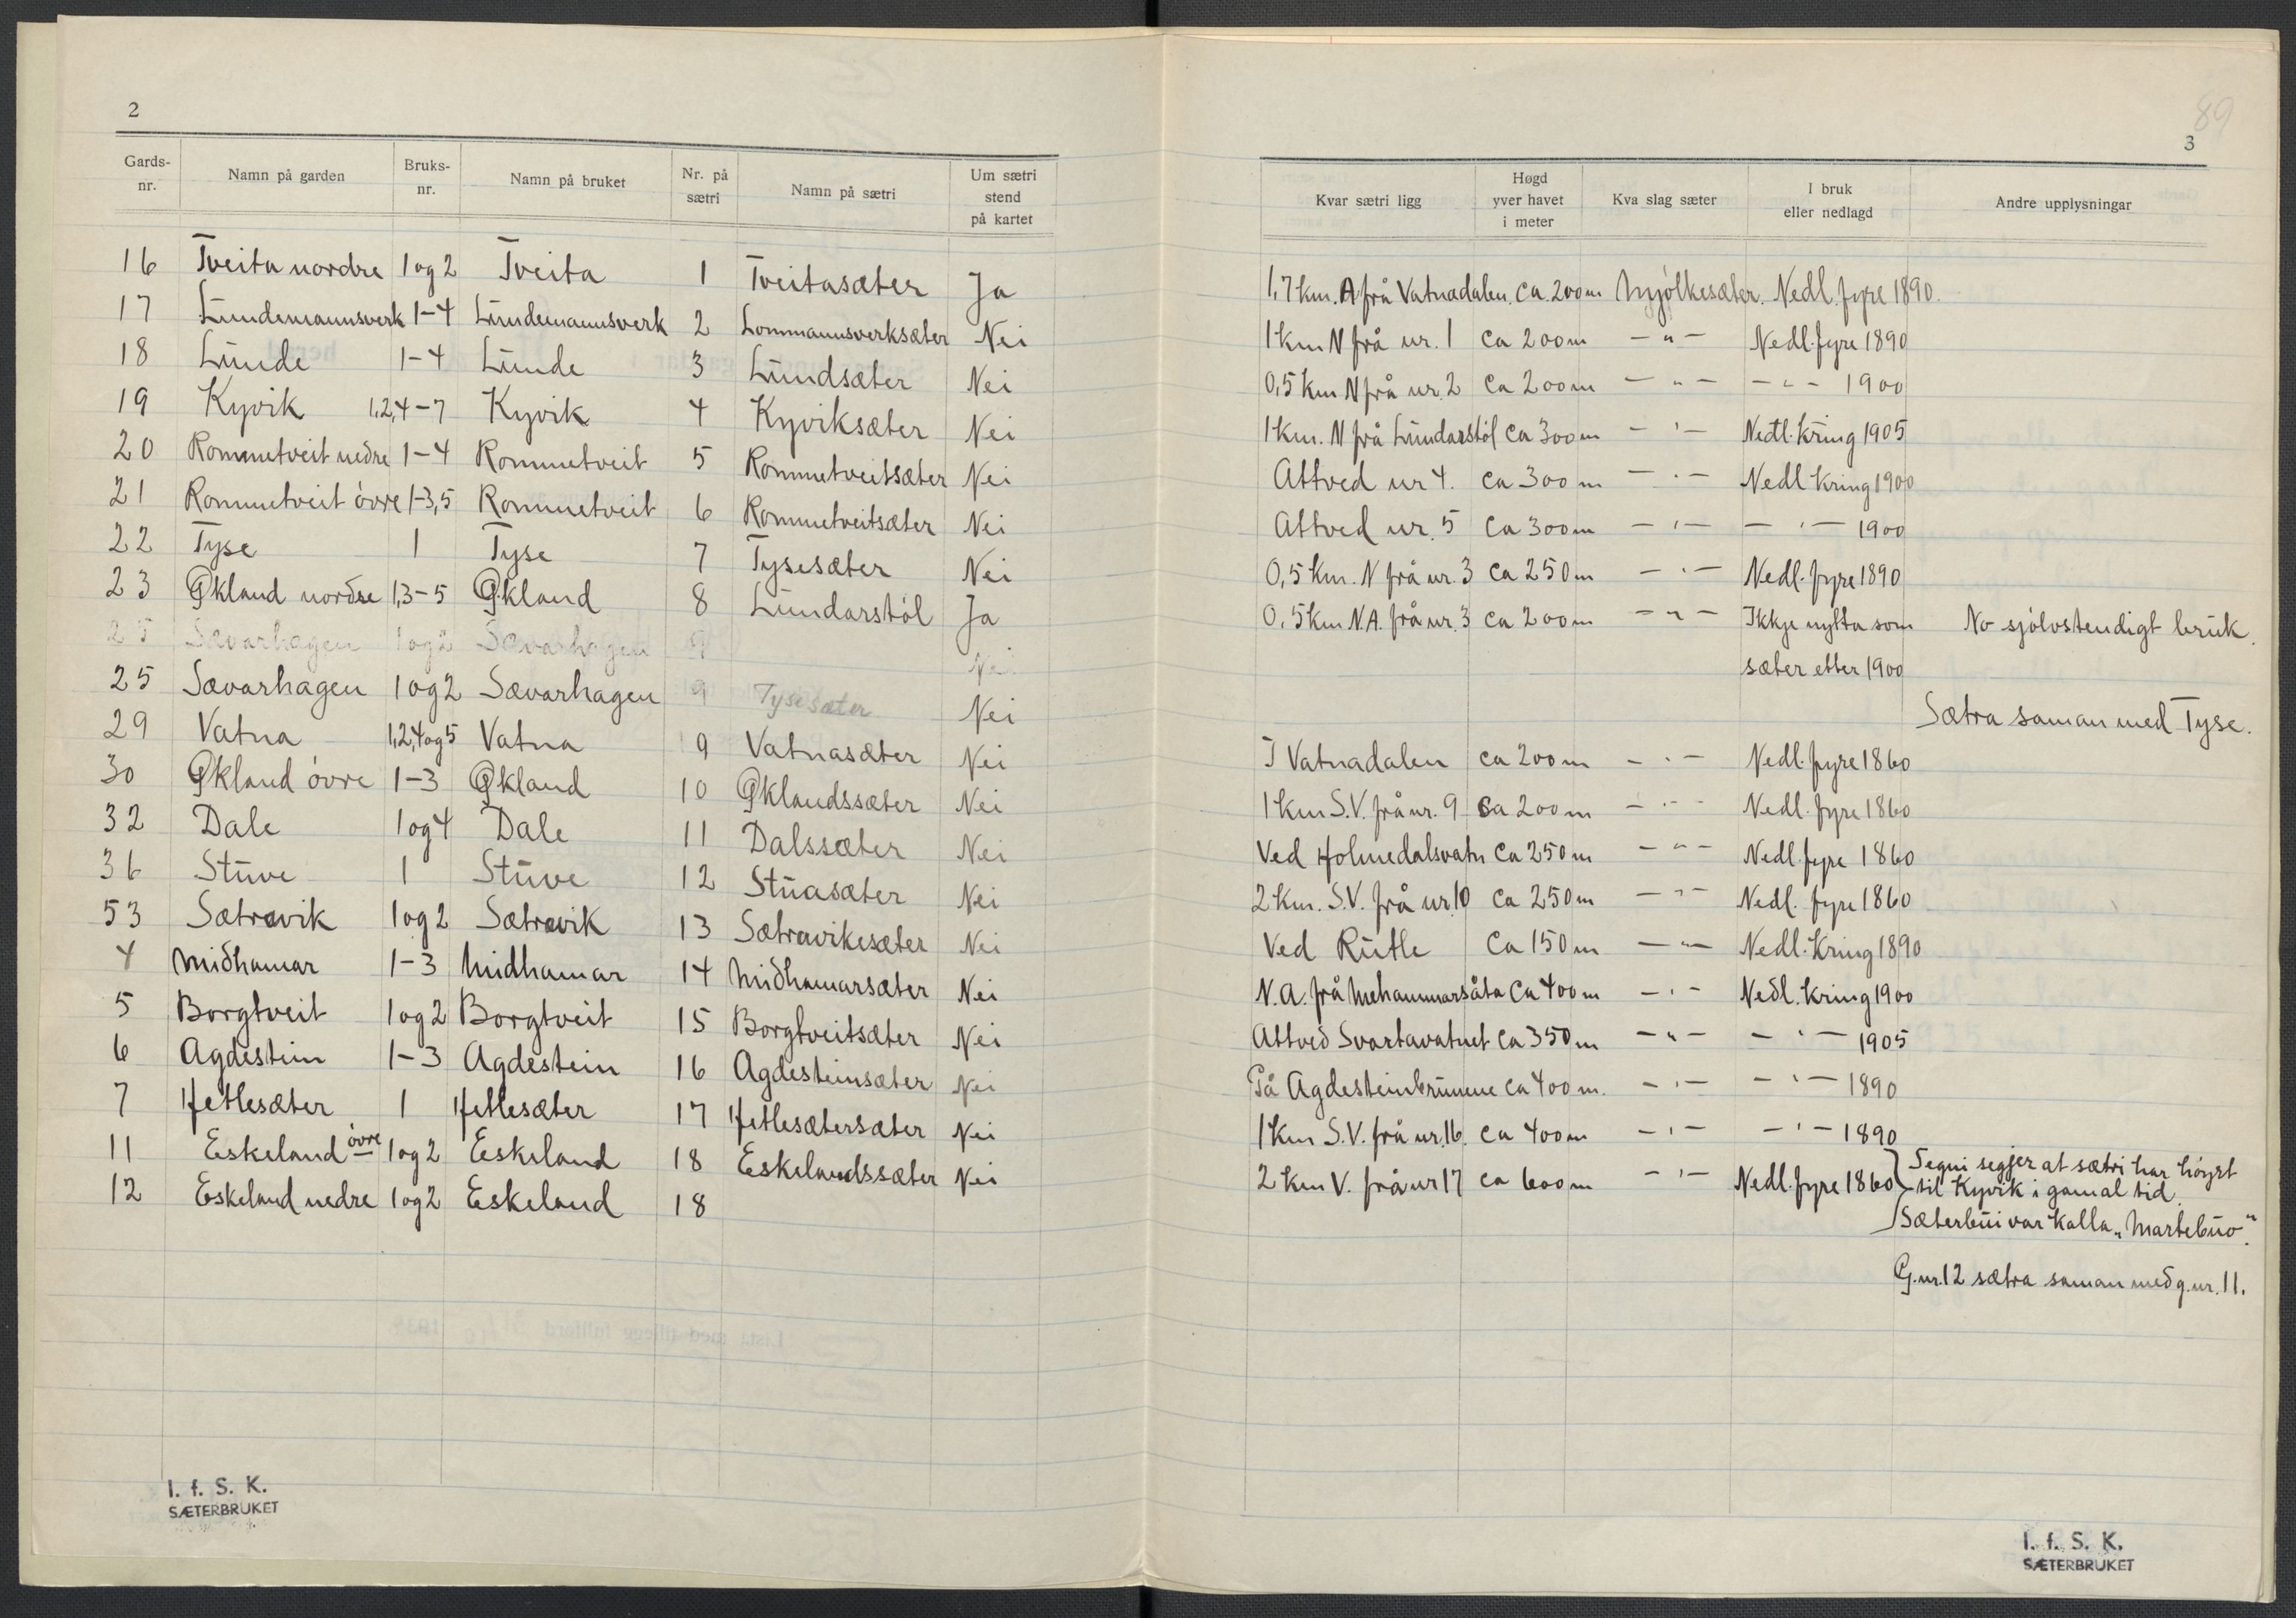 2
Gards-nr. Namn på garden Bruks-nr. Namn på bruket Nr. på sætri Namn på sætri Um sætri stend på kartet
16 Tveita nordre 1 og 2 Tveita 1 Tveitasæter Ja
17 Lundemannsverk 1-4 Lundemannsverk 2 Lommannsverksæter Nei
18 Lunde 1-4 Lunde 3 Lundsæter Nei
19 Kyvik 1,2,4-7 Kyvik 4 Kyviksæter Nei
20 Rommetveit nedre 1-4 Rommetveit 5 Rommetveitsæter Nei
21 Rommetveit óvre 1-3,5 Rommetveit 6 Rommetveitsæter Nei
22 Tyse 1 Tyse 7 Tysesæter Nei
23 Økland nordre 1,3-5 Økland 8 Lundarstól Ja
25 Sævarhagen 1 og 2 Sævarhagen 9 Nei
25 Sævarhagen 1 og 2 Sævarhagen 9 Tysesæter Nei
29 Vatna 1,2,4 og 5 Vatna 9 Vatnasæter Nei
30 Økland óvre 1-3 Økland 10 Øklandssæter Nei
32 Dale 1 og 4 Dale 11 Dalssæter Nei
36 Stuve 1 Stuve 12 Stuasæter Nei
53 Sætravik 1 og 2 Sætravik 13 Sætravikesæter Nei
4 Midhamar 1-3 Midhamar 14 Midhamarsæter Nei
5 Borgtveit 1 og 2 Borgtveit 15 Borgtveitsæter Nei
6 Agdestein 1-3 Agdestein 16 Agdesteinsæter Nei
7 Hetlesæter 1 Hetlesæter 17 Hetlesætersæter Nei
11 Eskeland óvre 1 og 2 Eskeland 18 Eskelandssæter Nei
12 Eskeland nedre 1 og 2 Eskeland 18
I. f. S. K.
SÆTERBRUKET
89
3
Kvar sætri ligg Høgd yver havet i meter Kva slag sæter I bruk eller nedlagd Andre upplysningar
1,7 km. A frå Vatnadalen. Ca. 200 m Mjólkesæter. Nedl. fyre 1890.
1 km N frå nr. 1 Ca 200 m - " - Nedl. fyre 1890
0,5 km N frå nr. 2 Ca 200 m - " - - " - 1900
1 km. N frå Lundarstól Ca 300 m - " - Nedl. kring 1905
Attved nr 4. Ca 300 m - " - Nedl kring 1900
Attved nr. 5 Ca 300 m - " - - " - 1900
0,5 km. N frå nr. 3 Ca 250 m - " - Nedl. fyre 1890
0,5 km N.A. frå nr. 3 Ca 200 m - " - Ikkje nytta som No sjólvstendigt bruk.
sæter etter 1900
Sætra saman med Tyse.
I Vatnadalen Ca 200 m - " - Nedl. fyre 1860
1 km S.V. frå nr. 9 Ca 200 m - " - Nedl. fyre 1860
Ved Holmedalsvatn Ca 250 m - " - Nedl. fyre 1860
2 km. S.V. frå nr. 10 Ca 250 m - " - Nedl. fyre 1860
Ved Rutle Ca 150 m - " - Nedl. kring 1890
N.A. frå Mehammarsåta Ca 400 m - " - Nedl. kring 1900
Attved Svartavatnet Ca 350 m - " - - " - 1905
På Agdesteinbrunene Ca 400 m. - " - - " - 1890
1 km S.V. frå nr. 16. Ca 400 m - " - - " - 1890
2 km V. frå nr 17 Ca 600 m - " - Nedl. fyre 1860 Segni segjer at sætri har hóyrt
til Kyvik i gamal tid.
Sæterbui var kalla „Martebuo".
G.nr. 12 sætra saman med g.nr. 11.
I. f. S. K.
SÆTERBRUKET